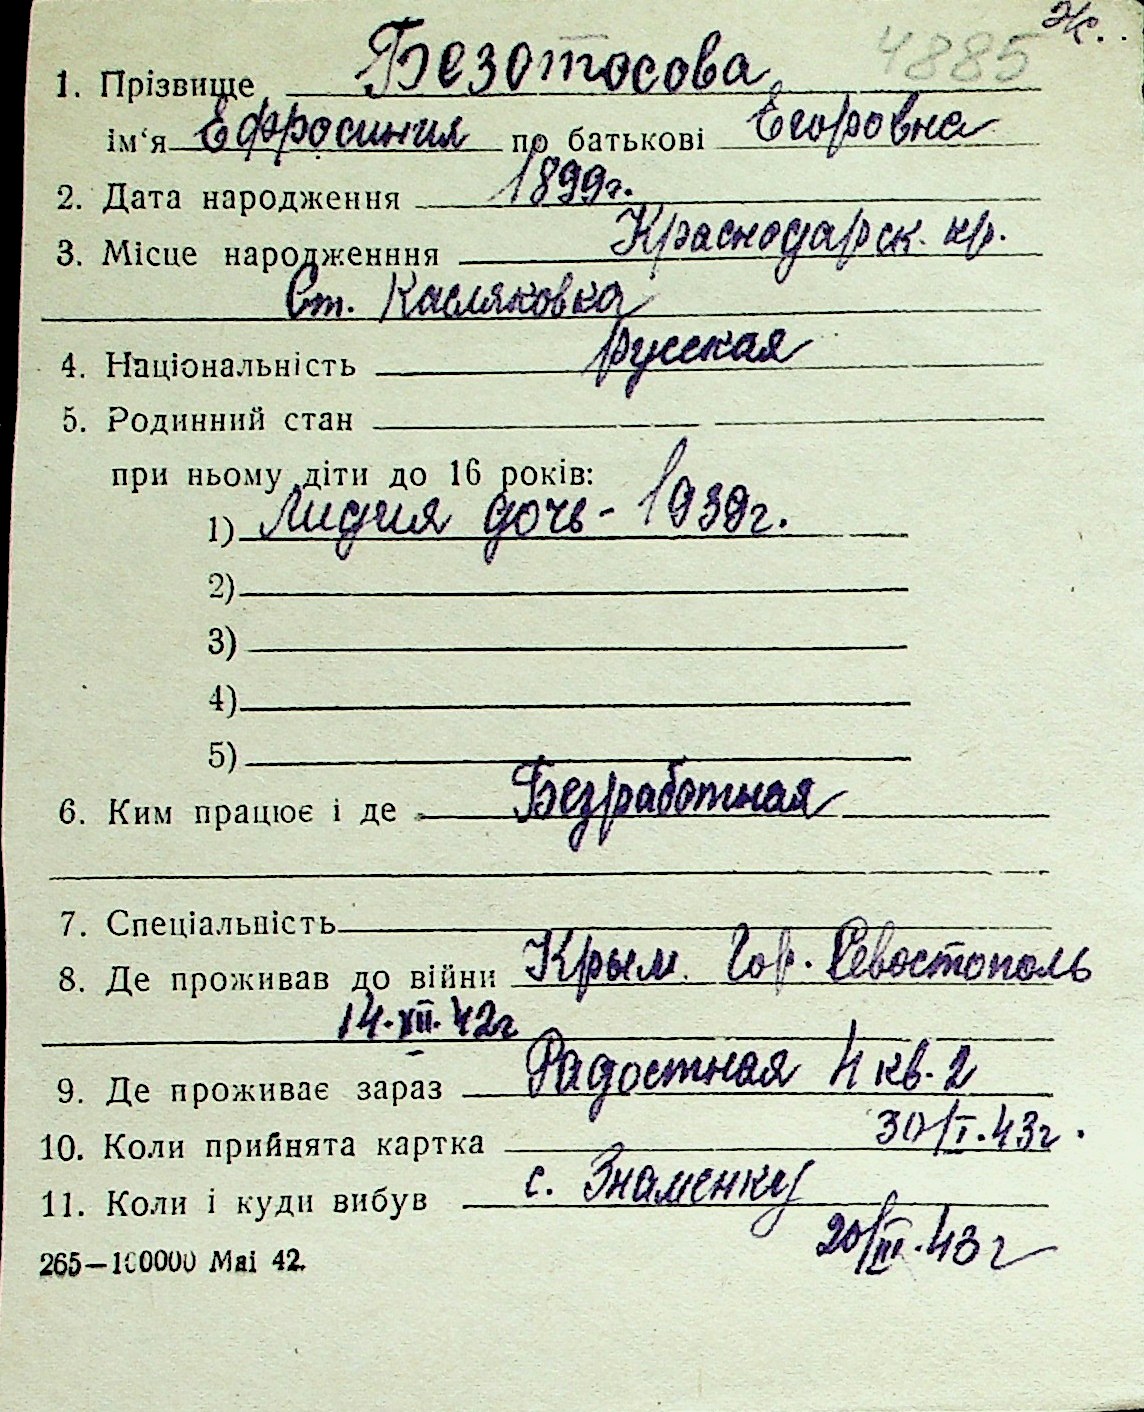 ж.
4885
1. Прізвище Безотосова
ім‘я Ефросиния по батькові Егоровна
2. Дата народження 1899г.
3. Місце народженння Краснодарск. кр.
Ст. Касляковка
4. Національність русская
5. Родинний стан
при ньому діти до 16 років:
1) Лидия дочь - 1939г.
2)
3)
4)
5)
6. Ким працює і де Безработная
7. Спеціальність
8. Де проживав до війни Крым. Гор. Севостополь
14.XII.42г
9. Де проживає зараз Радостная 4 кв. 2
10. Коли прийнята картка 30/I.43г.
11. Коли і куди вибув с. Знаменку
20/III.43г
265—100000 Mai 42.